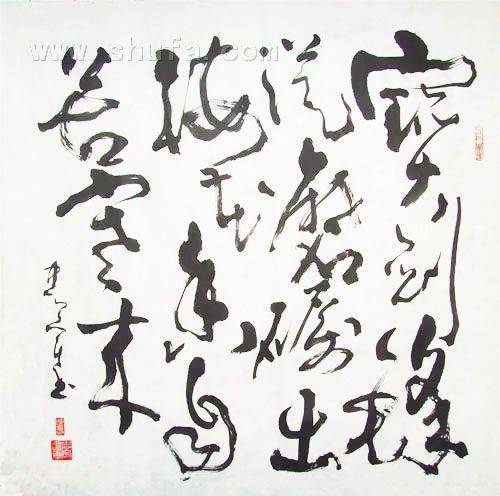 www.shufa.com
寶劍鋒
從磨礪出
梅花香自
苦寒來